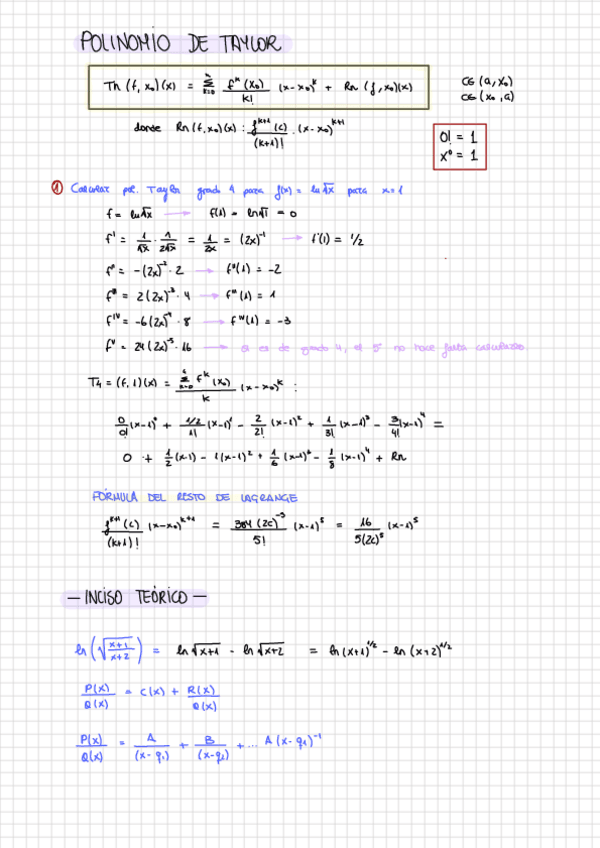 POLINOMIO DE TAYLOR
Tn (f, x₀)(x) = ∑ₖ₌₀ⁿ fᵏ(x₀)/k! (x-x₀)ᵏ + Rn (f, x₀)(x)
CE (a, x₀)
CE (x₀, a)
donde Rn (f, x₀)(x) : fᵏ⁺¹(c)/(k+1)! · (x-x₀)ᵏ⁺¹
0! = 1
x⁰ = 1
① Calcular pol. Taylor grado 4 para f(x) = ln√x para x=1
f = ln√x → f(1) = ln√1 = 0
f' = 1/√x · 1/2√x = 1/2x = (2x)⁻¹ → f'(1) = 1/2
f'' = -(2x)⁻² · 2 → f''(1) = -2
f''' = 2(2x)⁻³ · 4 → f'''(1) = 1
fᴵⱽ = -6(2x)⁻⁴ · 8 → fᴵⱽ(1) = -3
fⱽ = 24(2x)⁻⁵ · 16 → si es de grado 4, el 5 no hace falta calcularlo
T4 = (f, 1)(x) = ∑ fᵏ(x₀)/k (x-x₀)ᵏ :
0/0! (x-1)⁰ + 1/2/1! (x-1)¹ - 2/2! (x-1)² + 1/3! (x-1)³ - 3/4! (x-1)⁴ =
0 + 1/2 (x-1) - 1(x-1)² + 1/6 (x-1)³ - 1/8 (x-1)⁴ + Rn
FÓRMULA DEL RESTO DE LAGRANGE
fᵏ⁺¹(c)/(k+1)! (x-x₀)ᵏ⁺¹ = 384 (2c)⁻⁵/5! (x-1)⁵ = 16/5(2c)⁵ (x-1)⁵
— INCISO TEÓRICO —
ln (√(x+1/x+2)) = ln√x+1 - ln√x+2 = ln (x+1)^1/2 - ln (x+2)^1/2
P(x)/Q(x) = C(x) + R(x)/Q(x)
P(x)/Q(x) = A/(x-q₁) + B/(x-q₂) + ... A (x-q₁)⁻¹